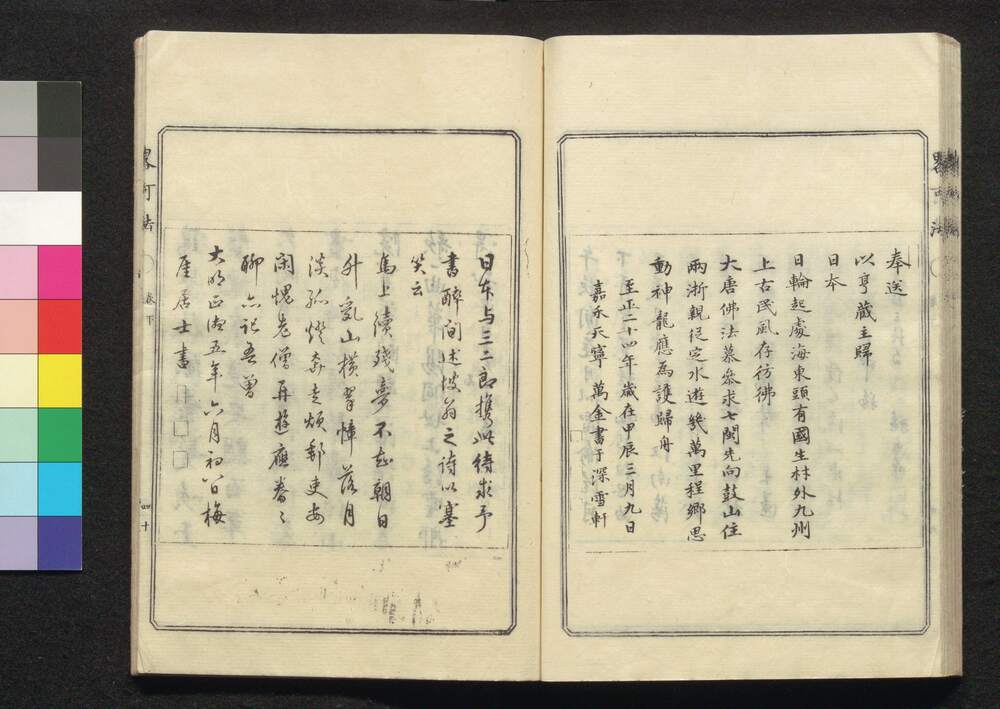 奉送
以亨藏主歸
日本
日輪起處海東頭有國生林外九州
上古民風存彷彿
大唐佛法慕參求七閩先向鼓山住
兩浙親從定水遊幾萬里程鄉思
動神龍應為護歸舟
至正二十四年歲在甲辰三月九日
嘉禾天寧 萬金書于深雪軒
日本与三二郎携此待求予
書醉間述坡翁之詩以塞
笑云
馬上續殘夢不知朝日
升亂山橫翠幛落月
淡孤燈奔走煩郵吏安
閑愧老僧再遊應眷々
聊亦記吾曾
大明正德五年六月初八日梅
厓居士書
卷下
四十